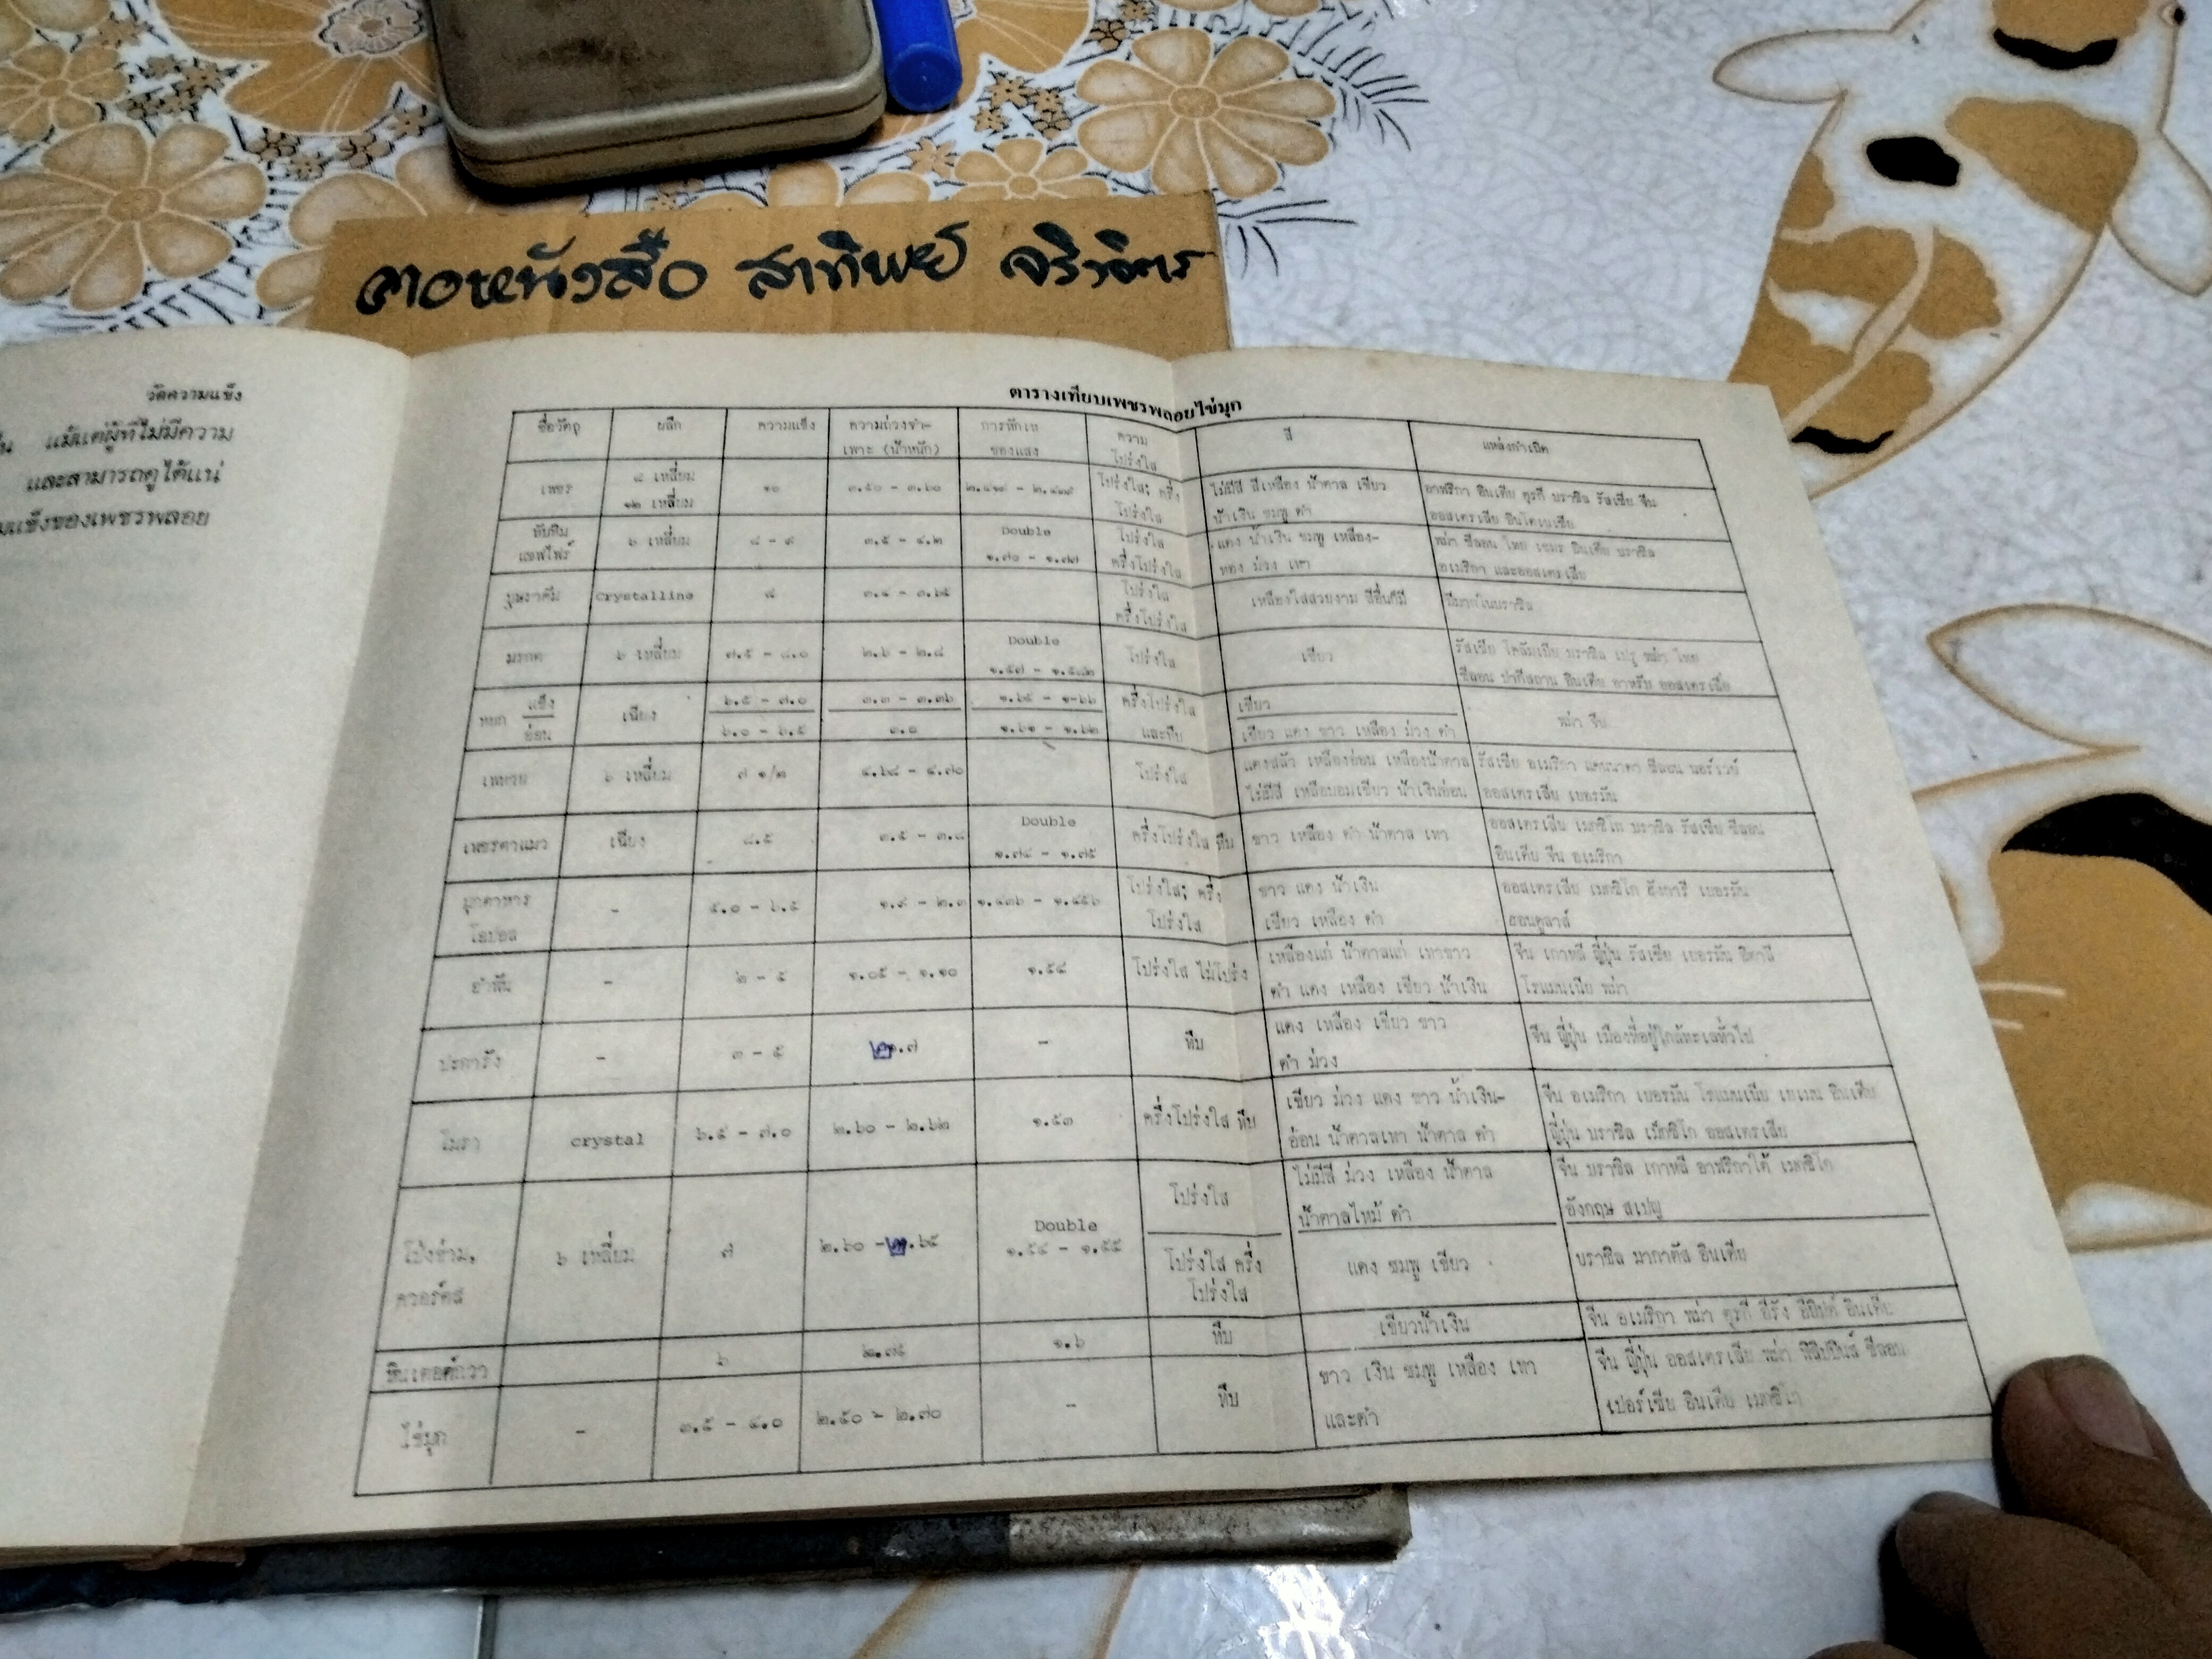 ตอหนังสือ สาทิพย์ จริวจิตร
วัดความแข็ง
แม้แต่ผู้ที่ไม่มีความ
และสามารถดูได้แน่
แข็งของเพชรพลอย
ตารางเทียบเพชรพลอยไข่มุก
ชื่อวัตถุ ผลึก ความแข็ง ความถ่วงจำ- การหักเห ความ สี แหล่งกำเนิด
เพาะ (น้ำหนัก) ของแสง โปร่งใส
เพชร ๘ เหลี่ยม ๑๐ ๓.๕๐ - ๓.๖๐ โปร่งใส; ครึ่ง ไม่มีสี สีเหลือง น้ำตาล เขียว อาฟริกา อินเดีย ตุรกี บราซิล รัสเซีย จีน
๑๒ เหลี่ยม โปร่งใส น้ำเงิน ชมพู ดำ ออสเตรเลีย อินโดเนเซีย
ทับทิม ๖ เหลี่ยม ๘ - ๙ ๓.๕ - ๔.๒ Double โปร่งใส แดง น้ำเงิน ชมพู เหลือง- พม่า ซีลอน ไทย เขมร อินเดีย บราซิล
แซฟไฟร์ ๑.๗๐ - ๑.๗๗ ครึ่งโปร่งใส ทอง ม่วง เทา อเมริกา และออสเตรเลีย
บุษราคัม Crystalline ๘ ๓.๔ - ๓.๖๕ โปร่งใส เหลืองใสสวยงาม สีอื่นก็มี มีมากในบราซิล
ครึ่งโปร่งใส
มรกต ๖ เหลี่ยม ๗.๕ - ๘.๐ ๒.๖ - ๒.๘ Double โปร่งใส เขียว รัสเซีย โคลัมเบีย บราซิล เปรู พม่า ไทย
๑.๕๗ - ๑.๕๘๒ ซีลอน ปากีสถาน อินเดีย อาหรับ ออสเตรเลีย
หยก แข็ง เฉียง ๖.๕ - ๗.๐ ๓.๓ - ๓.๓๖ ๑.๖๕ - ๑.๖๖ ครึ่งโปร่งใส เขียว พม่า จีน
อ่อน ๖.๐ - ๖.๕ ๓.๐ ๑.๖๑ - ๑.๖๒ และทึบ เขียว แดง ขาว เหลือง ม่วง ดำ
เพทาย ๖ เหลี่ยม ๗ ๑/๒ ๔.๖๘ - ๔.๗๐ โปร่งใส แดงสลัว เหลืองอ่อน เหลืองน้ำตาล รัสเซีย อเมริกา แคนนาดา ซีลอน นอร์เวย์
ไม่มีสี เหลืองอมเขียว น้ำเงินอ่อน ออสเตรเลีย เยอรมัน
เพชรตาแมว เฉียง ๘.๕ ๓.๕ - ๓.๘ Double ครึ่งโปร่งใส ทึบ ขาว เหลือง ดำ น้ำตาล เทา ออสเตรเลีย เมกซิโก บราซิล รัสเซีย ซีลอน
๑.๗๔ - ๑.๗๕ อินเดีย จีน อเมริกา
มุกดาหาร - ๕.๐ - ๖.๕ ๑.๙ - ๒.๓ ๑.๔๓๖ - ๑.๔๕๖ โปร่งใส; ครึ่ง ขาว แดง น้ำเงิน ออสเตรเลีย เมกซิโก ฮังการี เยอรมัน
โอปอล โปร่งใส เขียว เหลือง ดำ ฮอนดูลาส์
อำพัน - ๒ - ๕ ๑.๐๕ - ๑.๑๐ ๑.๕๔ โปร่งใส ไม่โปร่ง เหลืองแก่ น้ำตาลแก่ เทาขาว จีน เกาหลี ญี่ปุ่น รัสเซีย เยอรมัน อิตาลี
ดำ แดง เหลือง เขียว น้ำเงิน โรแมนเนีย พม่า
ปะการัง - ๓ - ๕ ๒.๗ - ทึบ แดง เหลือง เขียว ขาว จีน ญี่ปุ่น เมืองที่อยู่ใกล้ทะเลทั่วไป
ดำ ม่วง
โมรา crystal ๖.๕ - ๗.๐ ๒.๖๐ - ๒.๖๒ ๑.๕๓ ครึ่งโปร่งใส ทึบ เขียว ม่วง แดง ขาว น้ำเงิน- จีน อเมริกา เยอรมัน โรแมนเนีย เยเมน อินเดีย
อ่อน น้ำตาลเทา น้ำตาล ดำ ญี่ปุ่น บราซิล เม็กซิโก ออสเตรเลีย
โป่งข่าม, ๖ เหลี่ยม ๗ ๒.๖๐ - ๒.๖๕ Double โปร่งใส ไม่มีสี ม่วง เหลือง น้ำตาล จีน บราซิล เกาหลี อาฟริกาใต้ เมกซิโก
น้ำตาลไหม้ ดำ อังกฤษ สเปญ
ควอร์ตส ๑.๕๔ - ๑.๕๕ โปร่งใส ครึ่ง แดง ชมพู เขียว บราซิล มากาคัส อินเดีย
โปร่งใส
หินเตอค์กวา ๖ ๒.๗๕ ๑.๖ ทึบ เขียวน้ำเงิน จีน อเมริกา พม่า ตุรกี อีรัง อียิปต์ อินเดีย
ไข่มุก - ๓.๕ - ๔.๐ ๒.๕๐ - ๒.๗๐ - ทึบ ขาว เงิน ชมพู เหลือง เทา จีน ญี่ปุ่น ออสเตรเลีย พม่า ฟิลิปปินส์ ซีลอน
และดำ เปอร์เซีย อินเดีย เมกซิโก